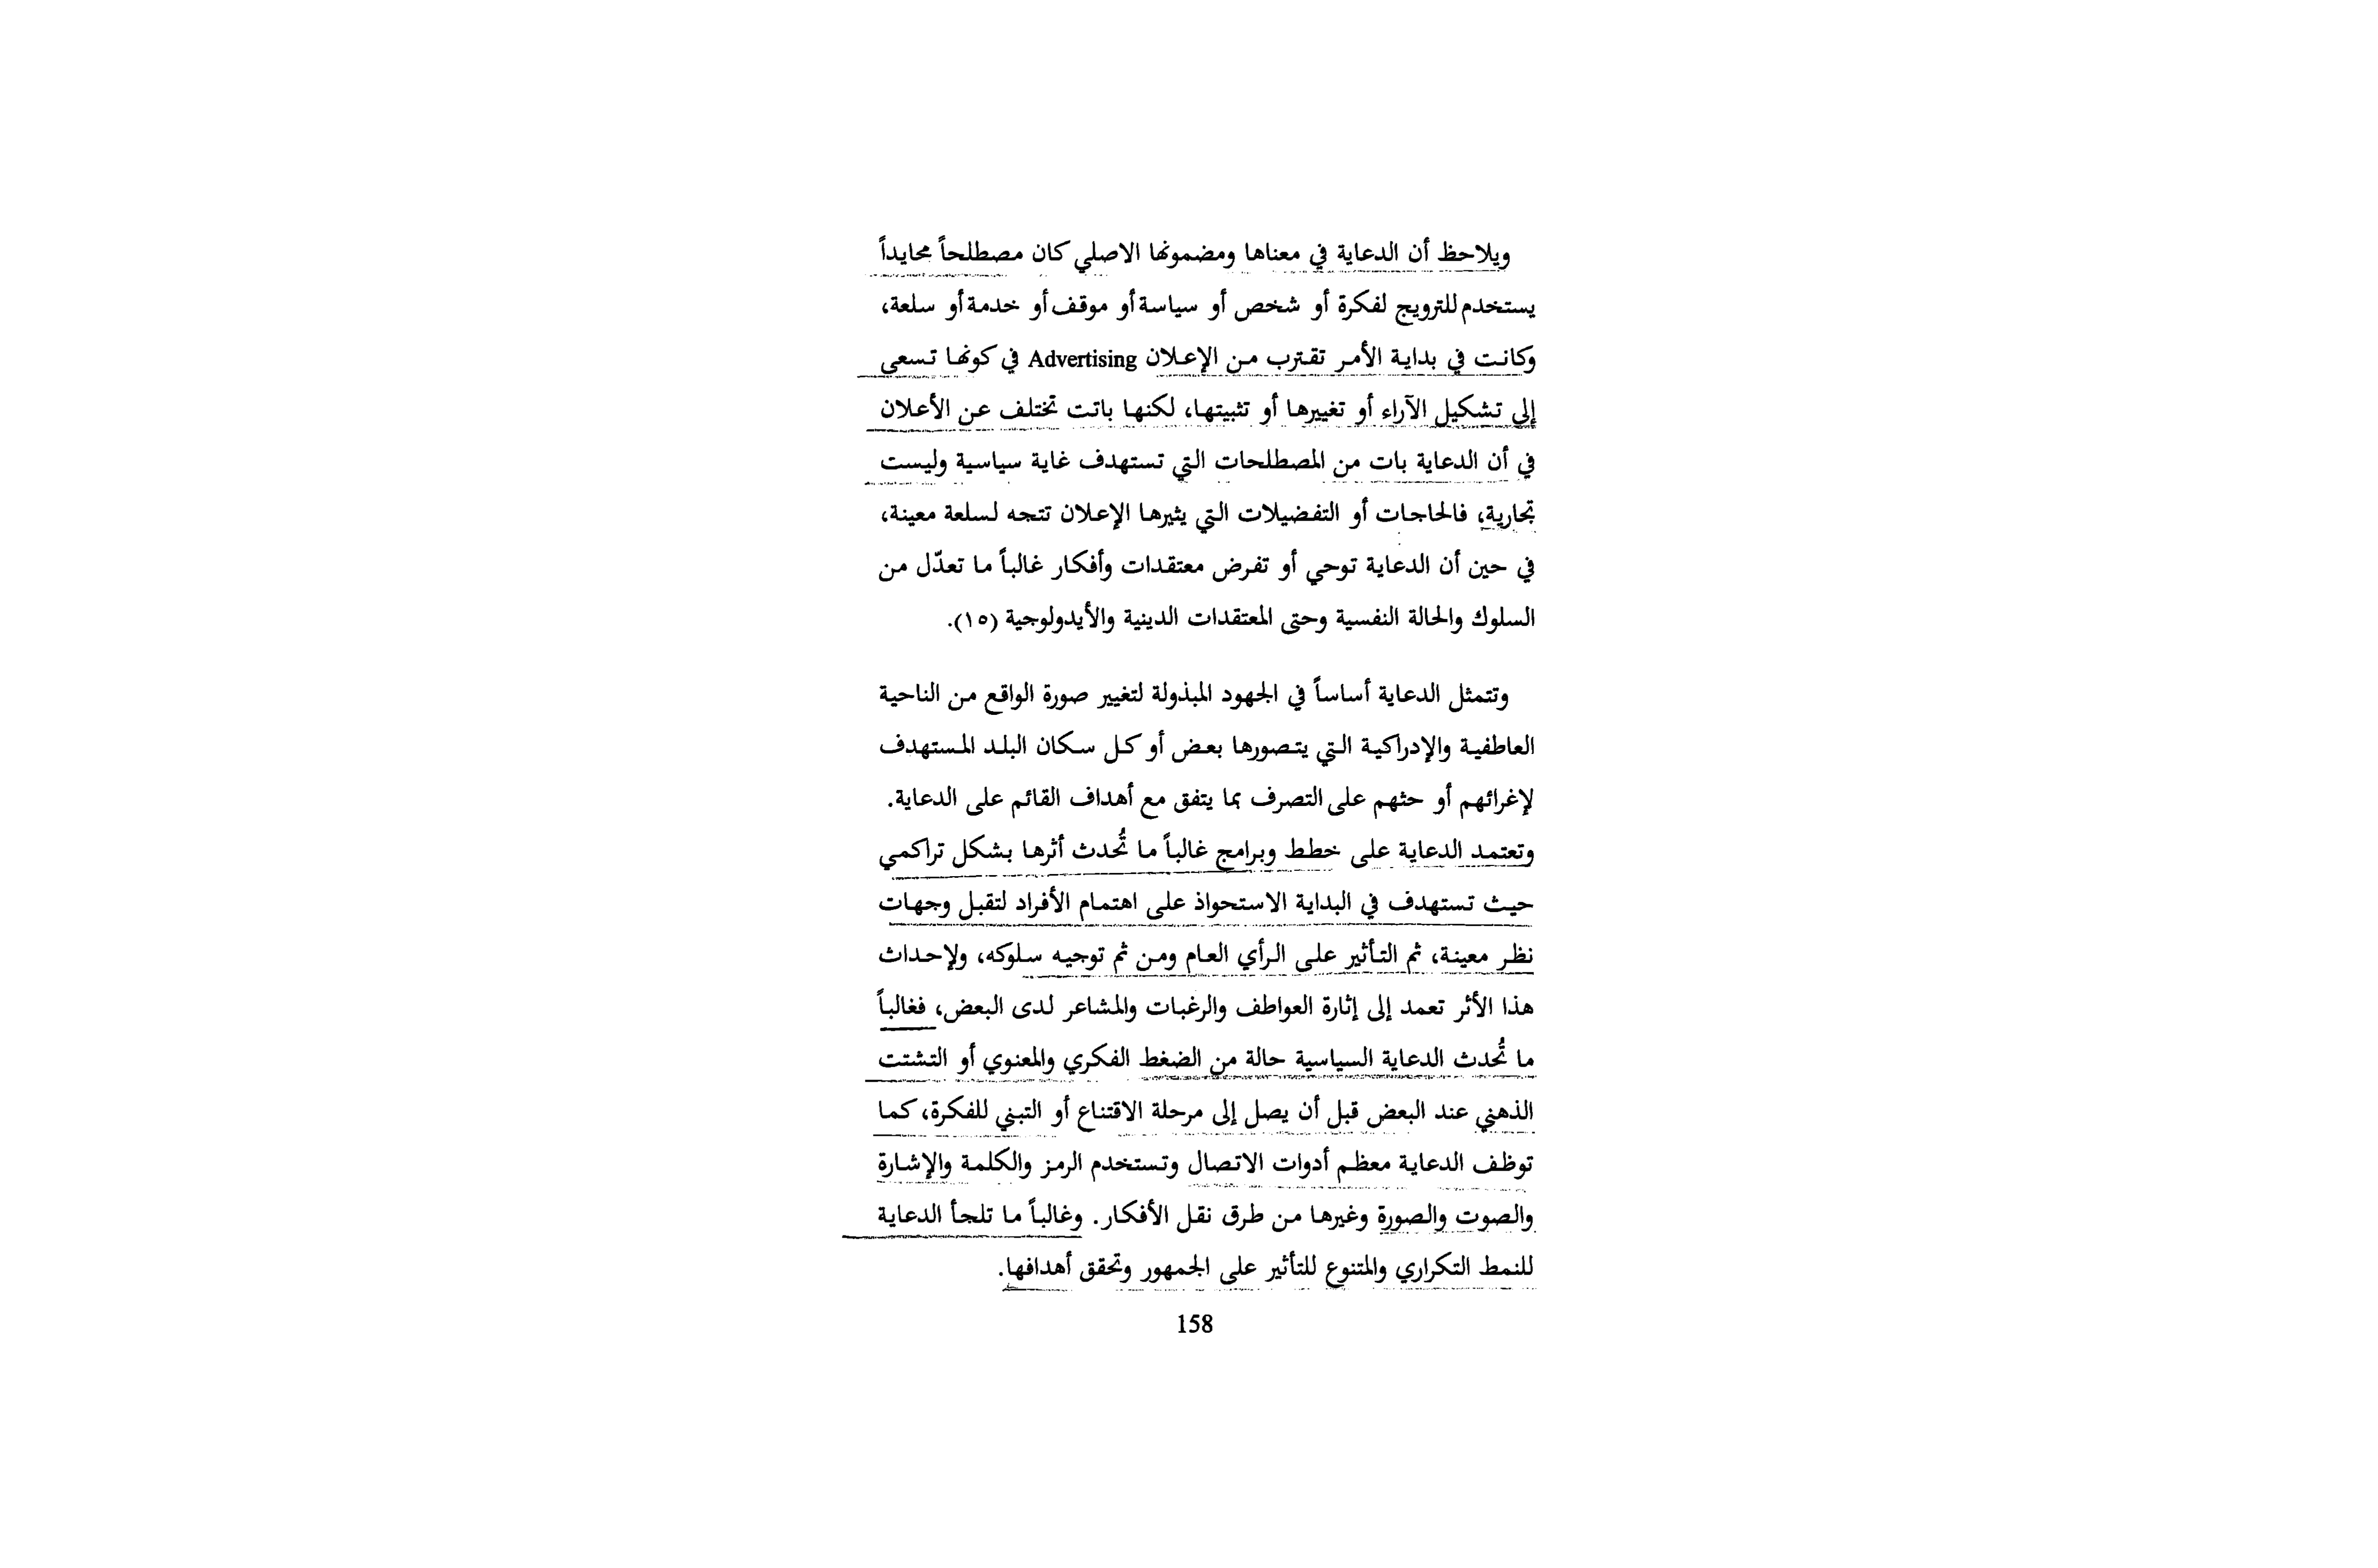 ويلاحظ أن الدعاية في معناها ومضمونها الاصلي كان مصطلحاً محايداً
يستخدم للترويج لفكرة أو شخص أو سياسة أو موقف أو خدمة أو سلعة،
وكانت في بداية الأمر تقترب من الإعلان Advertising في كونها تسعى
إلى تشكيل الآراء أو تغييرها أو تثبيتها، لكنها باتت تختلف عن الأعلان
في أن الدعاية بات من المصطلحات التي تستهدف غاية سياسية وليست
تجارية، فالحاجات أو التفضيلات التي يثيرها الإعلان تتجه لسلعة معينة،
في حين أن الدعاية توحي أو تفرض معتقدات وأفكار غالباً ما تعدّل من
السلوك والحالة النفسية وحتى المعتقدات الدينية والأيدولوجية (١٥).
وتتمثل الدعاية أساساً في الجهود المبذولة لتغيير صورة الواقع من الناحية
العاطفية والإدراكية التي يتصورها بعض أو كل سكان البلد المستهدف
لإغرائهم أو حثهم على التصرف بما يتفق مع أهداف القائم على الدعاية.
وتعتمد الدعاية على خطط وبرامج غالباً ما تُحدث أثرها بشكل تراكمي
حيث تستهدف في البداية الاستحواذ على اهتمام الأفراد لتقبل وجهات
نظر معينة، ثم التأثير على الرأي العام ومن ثم توجيه سلوكه، ولإحداث
هذا الأثر تعمد إلى إثارة العواطف والرغبات والمشاعر لدى البعض، فغالباً
ما تُحدث الدعاية السياسية حالة من الضغط الفكري والمعنوي أو التشتت
الذهني عند البعض قبل أن يصل إلى مرحلة الاقتناع أو التبني للفكرة، كما
توظف الدعاية معظم أدوات الاتصال وتستخدم الرمز والكلمة والإشارة
والصوت والصورة وغيرها من طرق نقل الأفكار. وغالباً ما تلجأ الدعاية
للنمط التكراري والمتنوع للتأثير على الجمهور وتحقق أهدافها.
158